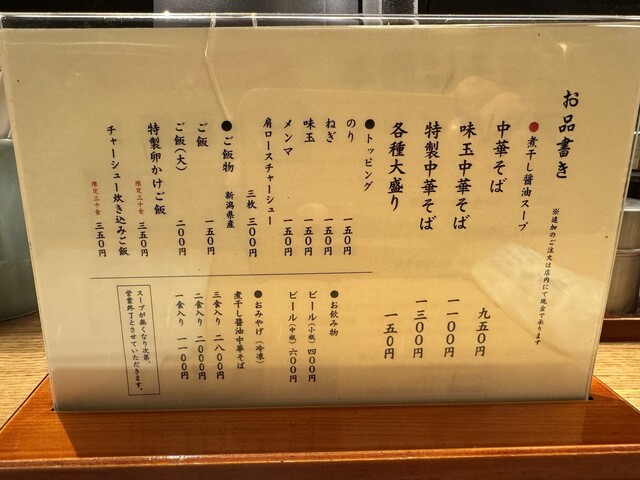 お品書き
※追加のご注文は店内にて現金で承ります
●煮干し醤油スープ
中華そば 九五〇円
味玉中華そば 一一〇〇円
特製中華そば 一三〇〇円
各種大盛り 一五〇円
●トッピング
のり 一五〇円
ねぎ 一五〇円
味玉 一五〇円
メンマ 一五〇円
肩ロースチャーシュー
三枚 三〇〇円
●ご飯物 新潟県産
ご飯 一五〇円
ご飯(大) 二〇〇円
特製卵かけご飯
限定三十食 三五〇円
チャーシュー炊き込みご飯
限定三十食 三五〇円
●お飲み物
ビール(小瓶) 四〇〇円
ビール(中瓶) 六〇〇円
●おみやげ(冷凍)
煮干し醤油中華そば
三食入り 二八〇〇円
二食入り 二〇〇〇円
一食入り 一一〇〇円
スープが無くなり次第、
営業終了とさせていただきます。